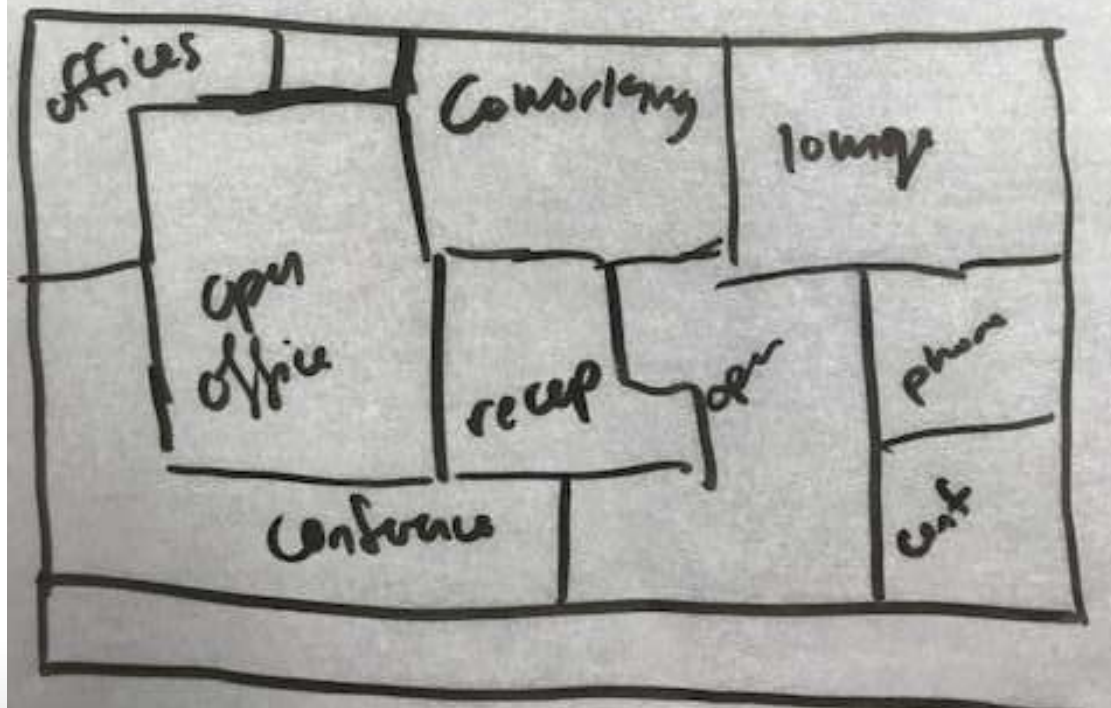 offices
Coworking
lounge
open
office
recep
open
phone
conference
conf